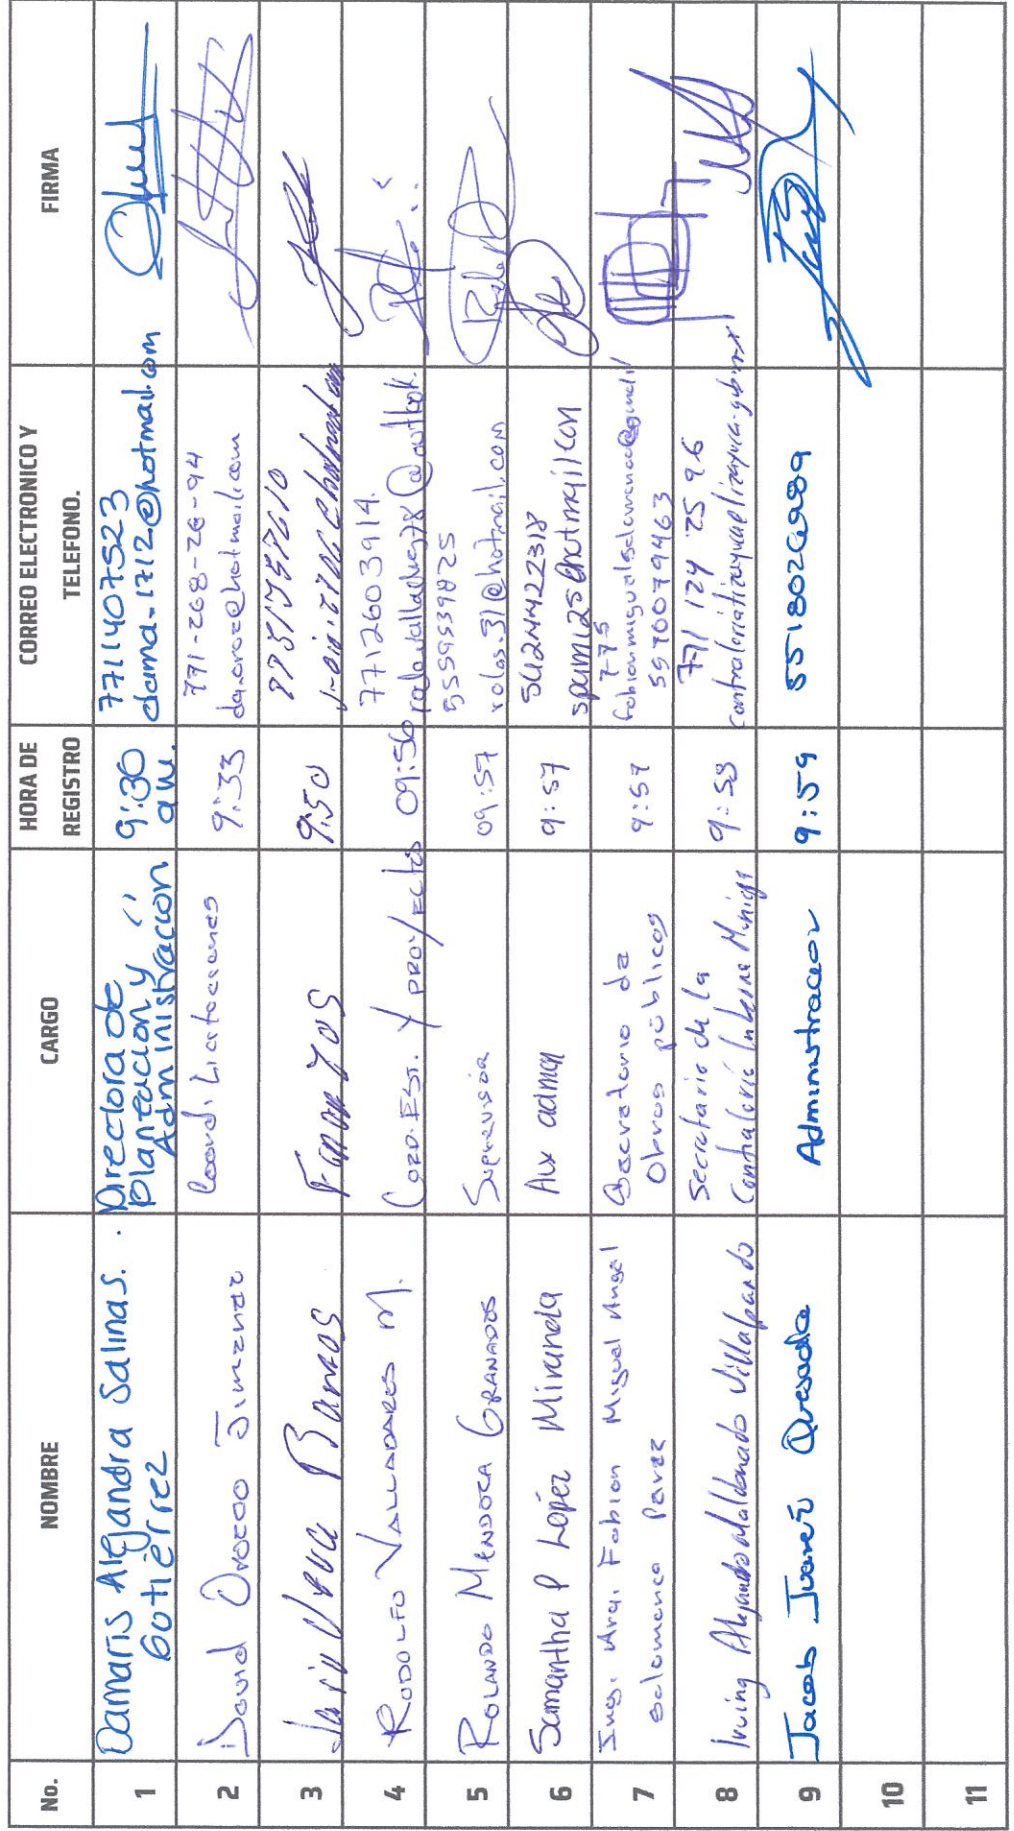 No.
NOMBRE
CARGO
HORA DE
REGISTRO
CORREO ELECTRONICO Y
TELEFONO.
FIRMA
1
Damaris Alejandra Salinas.
Gutiérrez
Directora de
Planeacion y
Administracion
9:30
am.
7711407523
dama-1712@hotmail.com
2
David Orozco Jimenez
Coordi Licitaciones
9:33
771-268-26-94
da.oroz@hotmail.com
3
Barros
9:50
4
RODOLFO VALLADARES M.
CORD. EST. Y PROYECTOS
09:56
7712603914
@outlook.
5
ROLANDO MENDOZA GRANADOS
Supervisor
09:57
5559539825
rolas.31@hotmail.com
6
Samantha P López Miranda
Aux admon
9:57
5624422318
spmm125@hotmail.com
7
Ing. Arq. Fabian Miguel Angel
Salamanca Perez
Secretario de
Obras públicas
9:57
5570079463
8
Irving Alejandro Maldonado Villalpando
Secretario de la
Contraloría Interna Municipal
9:58
771 124 25 96
9
Jacob Juarez Quesada
Administracion
9:59
5518026989
10
11